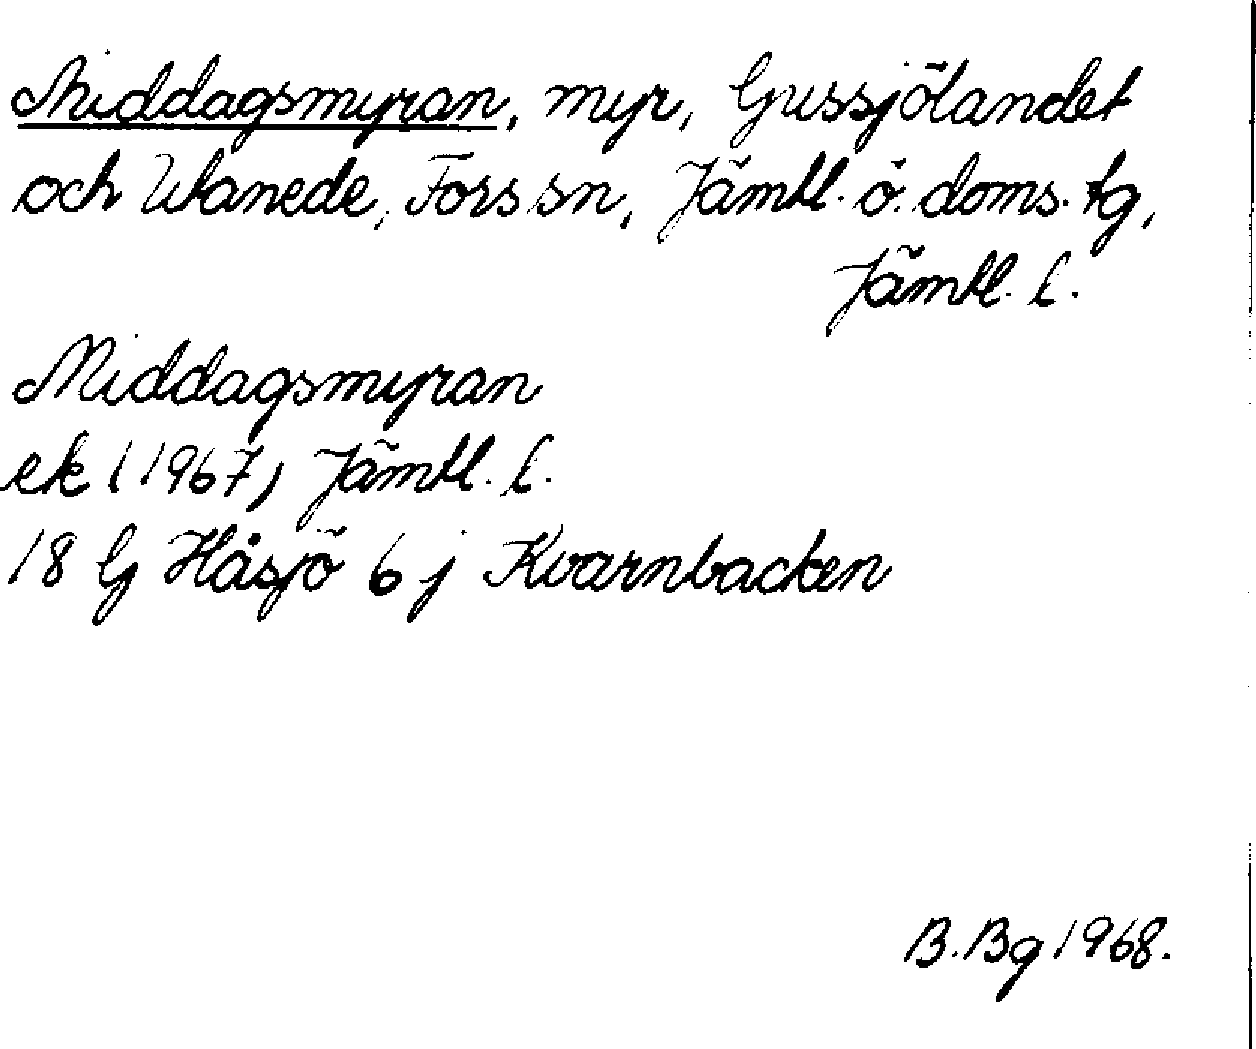 Middagsmyran, myr, Gussjölandet
och Utanede, Fors sn, Jämtl. ö. doms. tg,
Jämtl. l.
Middagsmyran
ek (1967) Jämtl. l.
18 G Håsjö 6 j Kvarnbacken
B. Bg 1968.